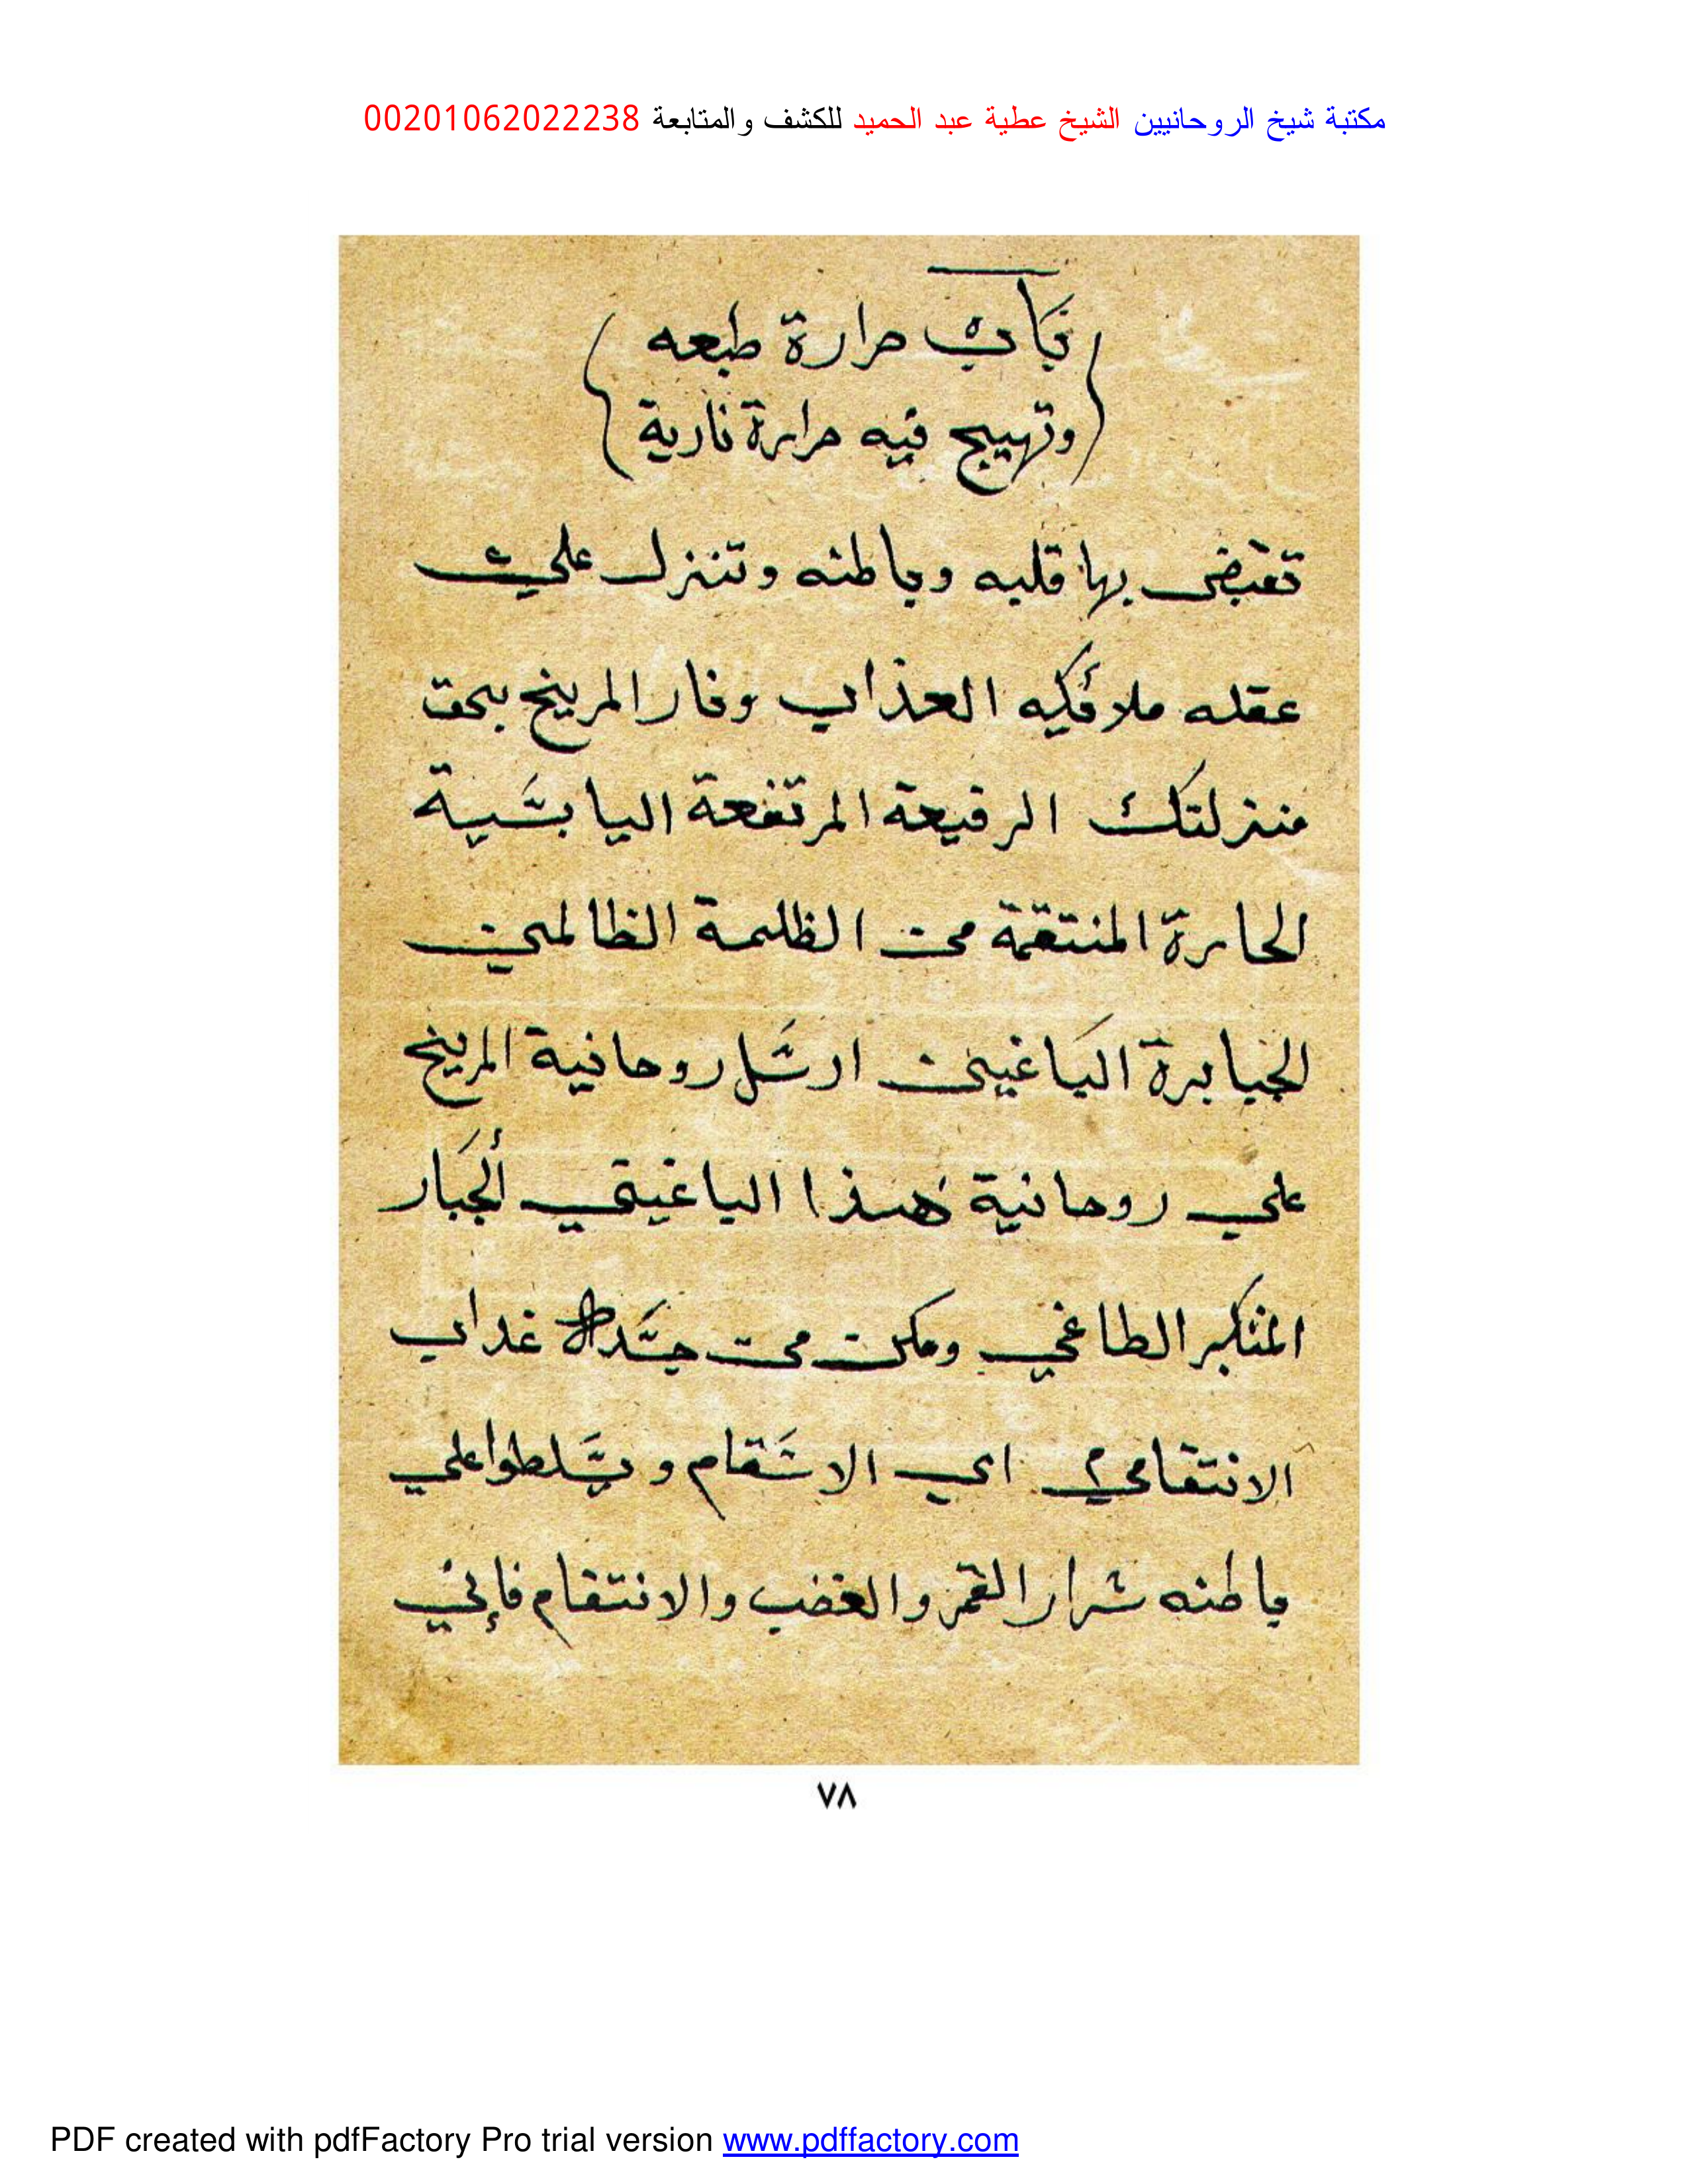 مكتبة شيخ الروحانيين الشيخ عطية عبد الحميد للكشف والمتابعة 00201062022238
حرارة طبعه
وتهييج فيه حرارة نارية
تقبض بها قلبه وباطنه وتنزل علي
عقله ملائكه العذاب ونار المريخ بحق
منزلتك الرفيعة المرتفعة اليابسية
الحارة المنتقمة من الظلمة الظالمين
الجبابرة الباغين ارسل روحانية المريخ
علي روحانية هذا الباغيتي الجبار
المتكبر الطاغي ومكن من جسده عداب
الانتقامي اي الاسقام ويسلطوا علي
باطنه شرار القمر والغضب والانتقام فإني
٧٨
PDF created with pdfFactory Pro trial version www.pdffactory.com